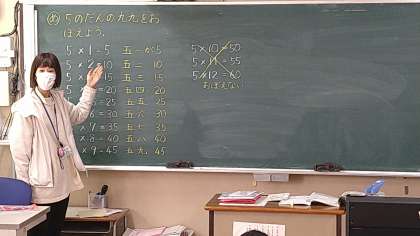 め 5のだんの九九をお
ぼえよう。
5×1=5 五一が5
5×2=10 五二 10
5× =15 五三 15
=20 五四 20
=25 五五 25
6=30 五六 30
×7=35 五七 35
×8=40 五八 40
×9=45 五九 45
5×10=50
5×11=55
5×12=60
おぼえない